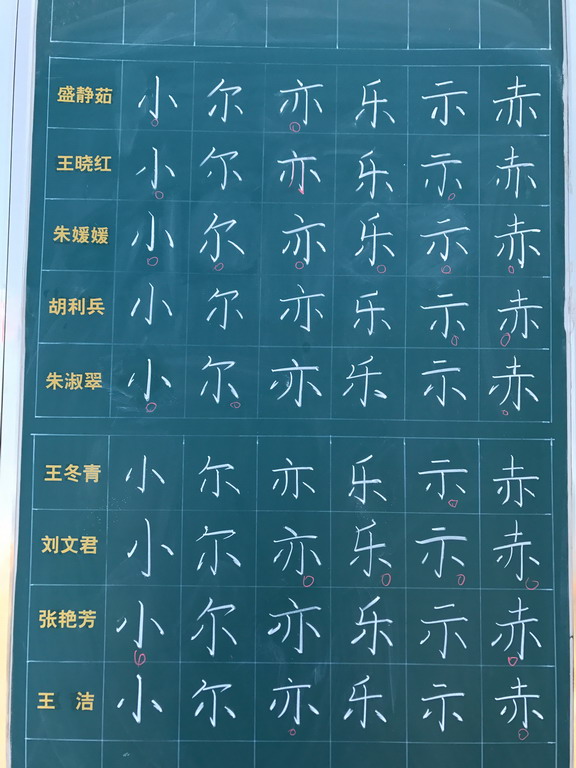 盛静茹 小 尔 亦 乐 示 赤
王晓红 小 尔 亦 乐 示 赤
朱媛媛 小 尔 亦 乐 示 赤
胡利兵 小 尔 亦 乐 示 赤
朱淑翠 小 尔 亦 乐 示 赤
王冬青 小 尔 亦 乐 示 赤
刘文君 小 尔 亦 乐 示 赤
张艳芳 小 尔 亦 乐 示 赤
王 洁 小 尔 亦 乐 示 赤